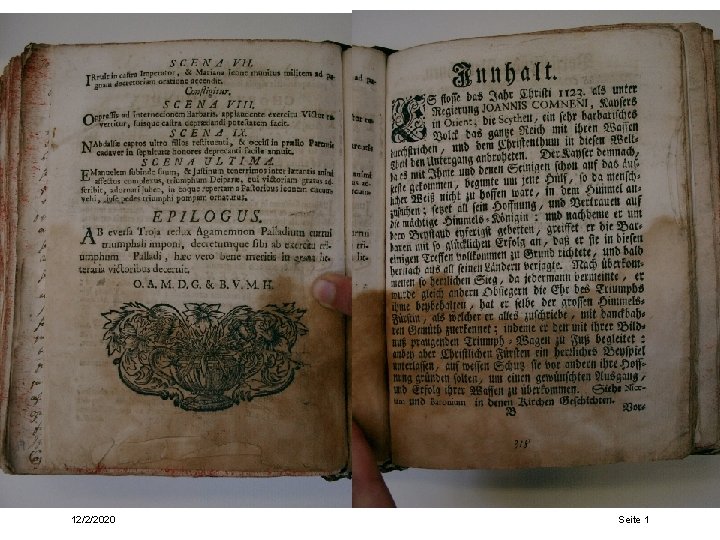 SCENA VII.
IRruit in castra Imperator, & Mariana Icone munitus militem ad pu-
gnam decretoriam oratione accendit.
Confligitur.
SCENA VIII.
OPpressis ad internecionem Barbaris, applaudente exercitu Victor re-
vertitur, suisque castra deprædandi potestatem facit.
SCENA IX.
NAbdalias captos ultro filios restituenti, & occisi in prælio Parentis
cadaver in sepulturæ honores deprecanti facilè annuit.
SCENA ULTIMA.
EManuelem subinde suum, & Justinum tenerrimos inter lætantis animi
affectus complexus, triumphum Deiparæ, cui victoriam gratus ad-
scribit, adornari jubet, in eoque repertam à Pastoribus iconem circum-
vehi, ipse pedes triumphi pompam ornaturus.
EPILOGUS.
AB eversa Troja redux Agamemnon Palladium currui
triumphali imponi, decretumque sibi ab exercitu tri-
umphum Palladi, hæc verò bene meritis in arena lit-
teraria victoribus decernit.
O. A. M. D. G. & B. V. M. H.
Innhalt.
ES stosse das Jahr Christi 1123. als unter
Regierung JOANNIS COMNENI, Kaysers
in Orient, die Scythen, ein sehr barbarisches
Volck das gantze Reich mit ihren Waffen
durchstrichen, und dem Christenthum in diesem Welt-
Theil den Untergang androheten. Der Kayser demnach,
da es mit Ihme und denen Seinigen schon auf das Aus-
serste gekommen, beginnte um jene Hülf, so da mensch-
licher Weiß nicht zu hoffen ware, in dem Himmel an-
zusuchen; setzet all sein Hoffnung, und Vertrauen auf
die mächtige Himmels-Königin: und nachdeme er um
dero Beystand eyferigst gebetten, greiffet er die Bar-
baren mit so glücklichen Erfolg an, daß er sie in diesen
einigen Treffen vollkommen zu Grund richtete, und bald
hernach aus all seinen Ländern verjagte. Nach überkom-
menen so herrlichen Sieg, da jedermann vermeinte, er
wurde gleich andern Obsiegern die Ehr des Triumphs
ihme beybehalten, hat er selbe der grossen Himmels-
Fürstin, als welcher er alles zuschriebe, mit danckbah-
ren Gemüth zuerkennet; indeme er den mit ihrer Bild-
nuß prangenden Triumph-Wagen zu Fuß begleitet:
anbey aber Christlichen Fürsten ein herrliches Beyspiel
unterlassen, auf wessen Schutz sie vor andern ihre Hoff-
nung gründen sollen, um einen gewünschten Ausgang,
und Erfolg ihrer Waffen zu überkommen. Siehe
und Baronium in denen Kirchen Geschichten.
B Vor-
315
12/2/2020
Seite 1